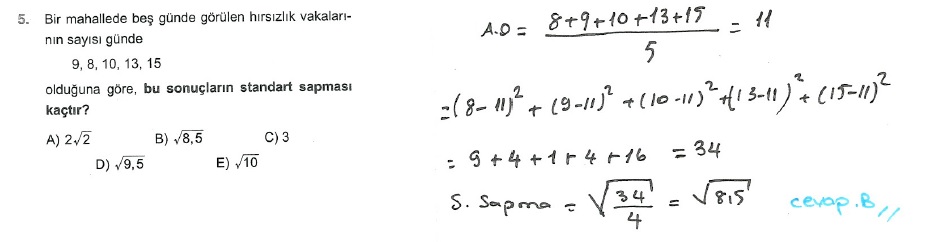 5. Bir mahallede beş günde görülen hırsızlık vakaları-
nın sayısı günde
9, 8, 10, 13, 15
olduğuna göre, bu sonuçların standart sapması
kaçtır?
A) 2√2 B) √8,5 C) 3
D) √9,5 E) √10
A.O = (8+9+10+13+15)/5 = 11
=(8-11)² + (9-11)² + (10-11)² + (13-11)² + (15-11)²
= 9 + 4 + 1 + 4 + 16 = 34
S. Sapma = √(34/4) = √8,5 cevap.B //